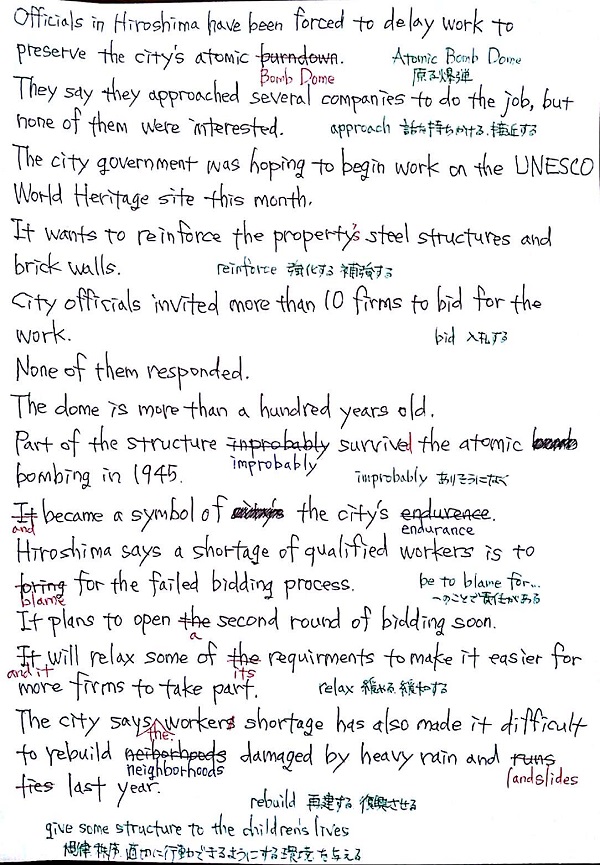 Officials in Hiroshima have been forced to delay work to
preserve the city's atomic burndown. Atomic Bomb Dome
Bomb Dome 原子爆弾
They say they approached several companies to do the job, but
none of them were interested. approach 話を持ちかける、接近する
The city government was hoping to begin work on the UNESCO
World Heritage site this month.
It wants to reinforce the property's steel structures and
brick walls. reinforce 強化する 補強する
City officials invited more than 10 firms to bid for the
work. bid 入札する
None of them responded.
The dome is more than a hundred years old.
Part of the structure inprobably survived the atomic
improbably
bombing in 1945. improbably ありそうになく
It became a symbol of the city's endurence.
and endurance
Hiroshima says a shortage of qualified workers is to
bring for the failed bidding process. be to blame for...
blame 〜のことで責任がある
It plans to open the second round of bidding soon.
a
It will relax some of the requirments to make it easier for
and it its
more firms to take part. relax 緩める、緩和する
The city says workers shortage has also made it difficult
the
to rebuild neiborhoods damaged by heavy rain and runs
neighborhoods landslides
ties last year.
rebuild 再建する 復興させる
give some structure to the children's lives
規律 秩序 適切に行動できるようにする環境を与える